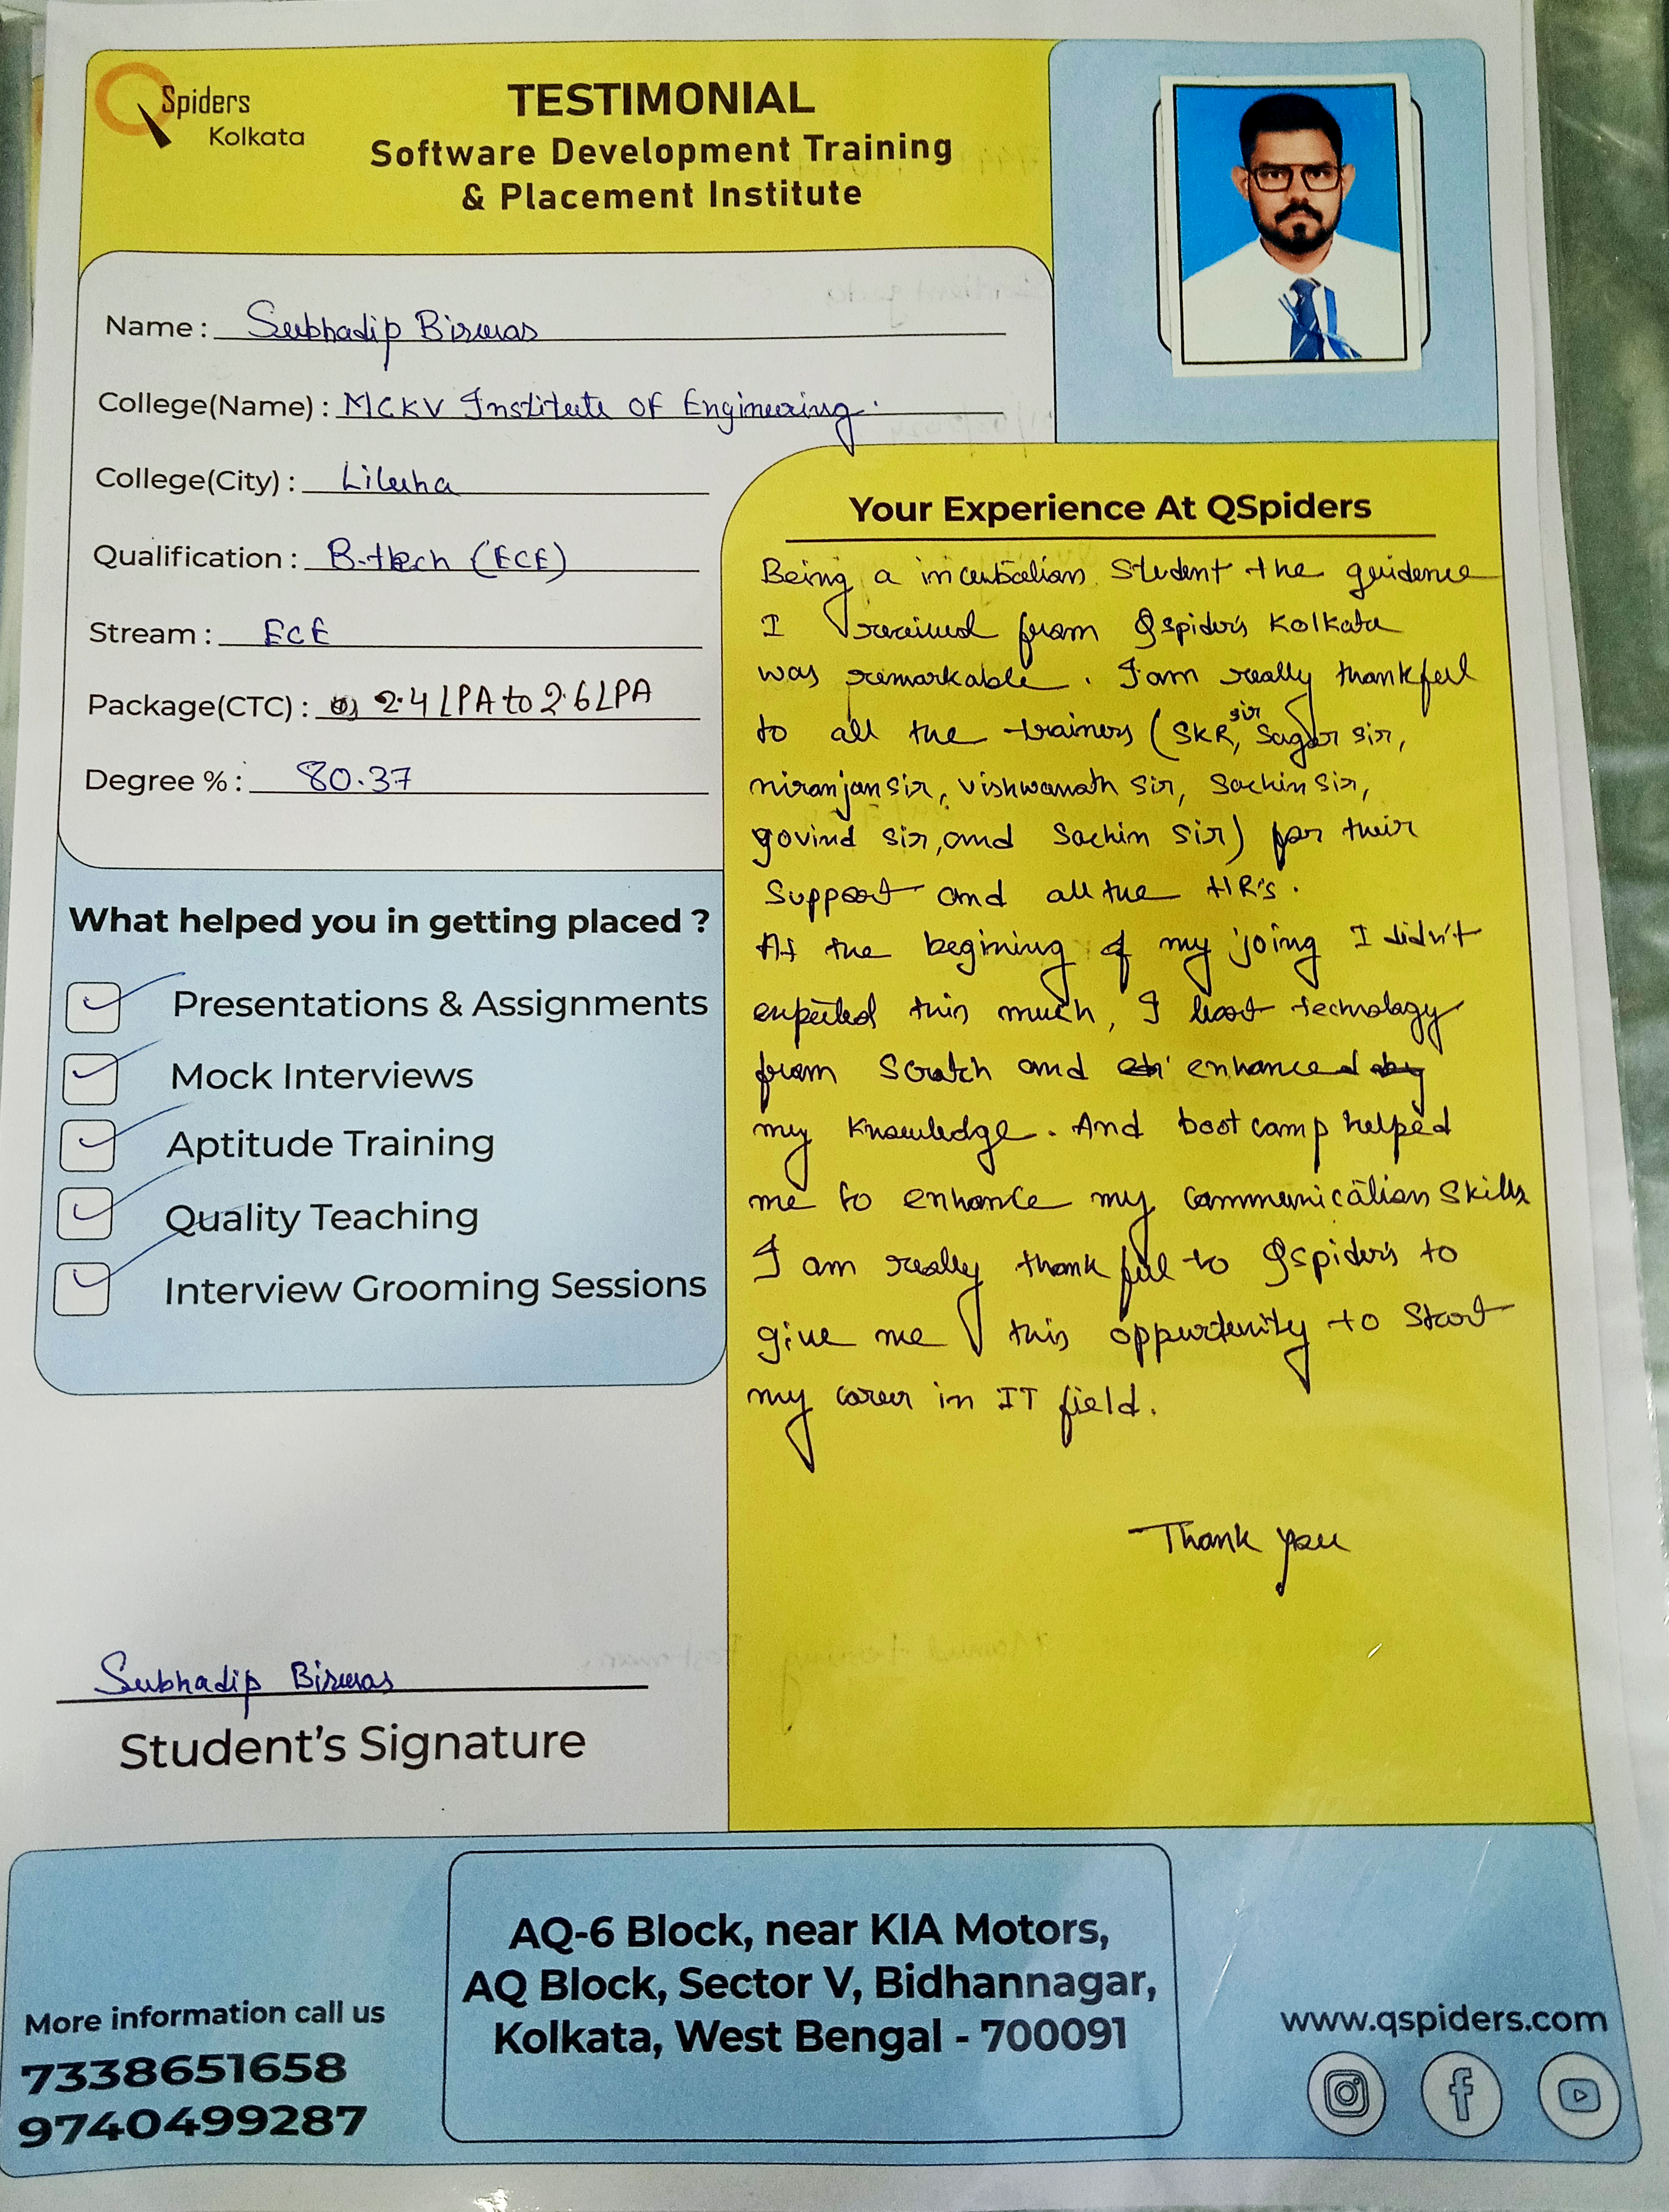 QSpiders
Kolkata
TESTIMONIAL
Software Development Training
& Placement Institute
Name : Subhadip Biswas
College(Name) : MCKV Institute OF Engineering.
College(City) : Liluha
Qualification : B.tech (ECE)
Stream : ECE
Package(CTC) : 2.4 LPA to 2.6 LPA
Degree % : 80.37
What helped you in getting placed ?
Presentations & Assignments
Mock Interviews
Aptitude Training
Quality Teaching
Interview Grooming Sessions
Your Experience At QSpiders
Being a incubation Student the guidence
I received from Qspiders Kolkata
was remarkable. I am really thankful
to all the trainers (SKR sir, Sagar sir,
niranjan sir, vishwanath sir, Sachin sir,
govind sir, and Sachin sir) for their
Support and all the HR's.
At the begining of my joing I didn't
expected this much, I leart technology
from Scratch and enhanced
my knowledge. And boot camp helped
me to enhance my communication skills
I am really thankful to Qspiders to
give me this oppurtunity to Start
my career in IT field.
Thank you
Subhadip Biswas
Student's Signature
More information call us
7338651658
9740499287
AQ-6 Block, near KIA Motors,
AQ Block, Sector V, Bidhannagar,
Kolkata, West Bengal - 700091
www.qspiders.com